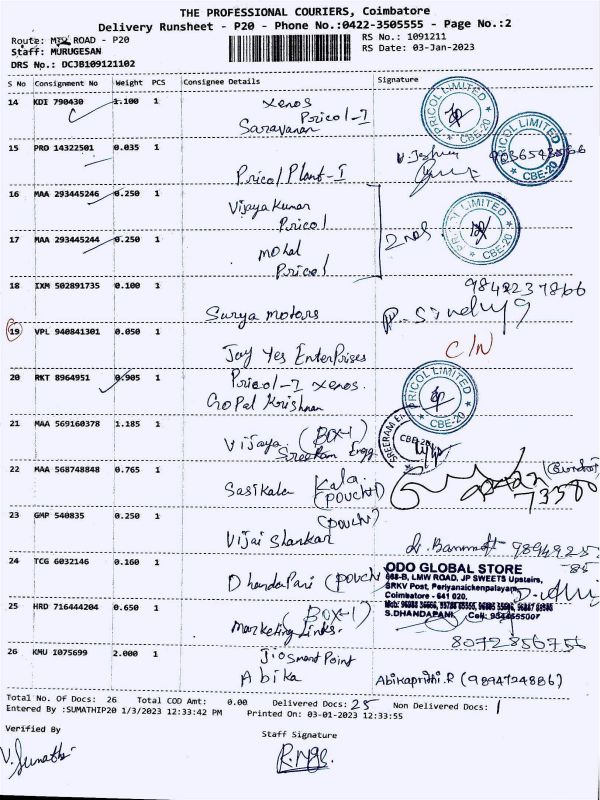 THE PROFESSIONAL COURIERS, Coimbatore
Delivery Runsheet - P20 - Phone No.:0422-3505555 - Page No.:2
Route: ROAD - P20
RS No.: 1091211
Staff: MURUGESAN
RS Date: 03-Jan-2023
DRS No.: DCJB109121102
S No Consignment No Weight PCS Consignee Details Signature
14 KDI 790430 1.100 1 Xenos Pricol-I
Saravanan
PRICOL LIMITED CBE-20
15 PRO 14322501 0.035 1 Pricol Plant-I
PRICOL LIMITED CBE-20
16 MAA 293445246 0.250 1 Vijaya Kumar
Pricol
17 MAA 293445244 0.250 1 Mohal
Pricol
2 nos
PRICOL LIMITED CBE-20
18 IXM 502891735 0.100 1 Surya Motors
9842237866
19 VPL 940841301 0.050 1 Jay Yes Enterprises
C/N
20 RKT 8964951 0.905 1 Pricol-I Xenos.
Gopal Krishnan
PRICOL LIMITED CBE-20
21 MAA 569160378 1.185 1 Vijaya (BOX-1)
Sreeram Engg
22 MAA 568748848 0.765 1 Sasikala Kala
(pouch)
73580
23 GMP 540835 0.250 1 (pouch)
Vijai Shankar
24 TCG 6032146 0.160 1 DhandaPani (pouch)
ODO GLOBAL STORE
668-B, LMW ROAD, JP SWEETS Upstairs,
SRKV Post, Periyanaickenpalayam,
Coimbatore - 641 020.
S.DHANDAPANI
25 HRD 716444204 0.650 1 (BOX-1)
Marketing Links.
8072856756
26 KMU 1075699 2.000 1 Jiosmart Point
Abika
Abikaprithi.R (9894724886)
Total No. Of Docs: 26 Total COD Amt: 0.00 Delivered Docs: 25 Non Delivered Docs: 1
Entered By :SUMATHIP20 1/3/2023 12:33:42 PM Printed On: 03-01-2023 12:33:55
Verified By
Staff Signature
V. Sumathi